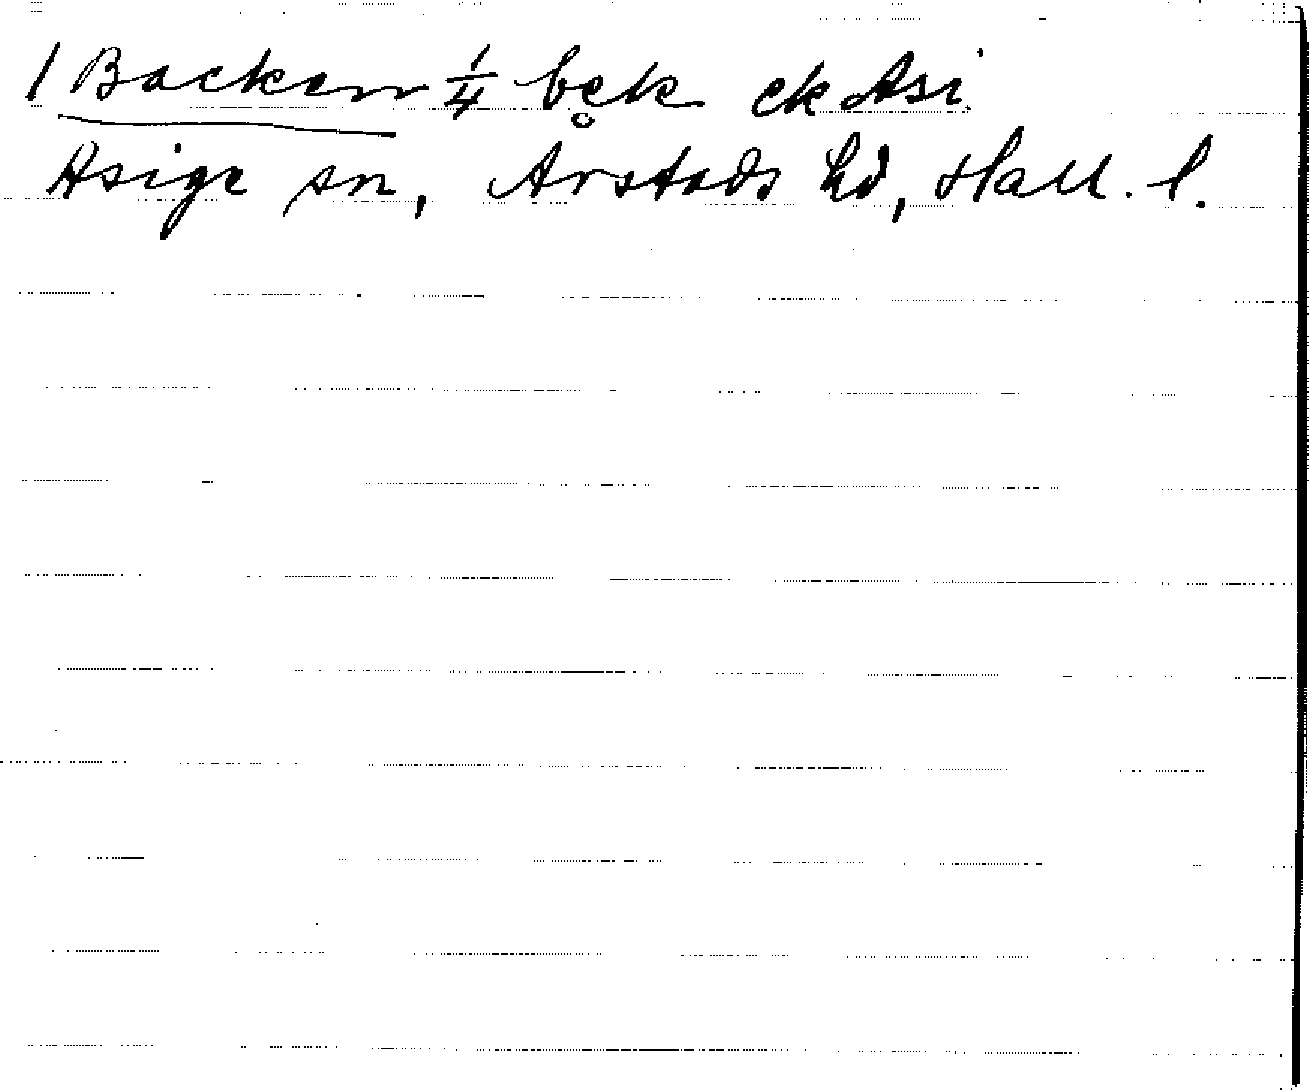 1 Backen 1/4 bek ek Asi
Asige sn, Årstads hd, Hall. l.